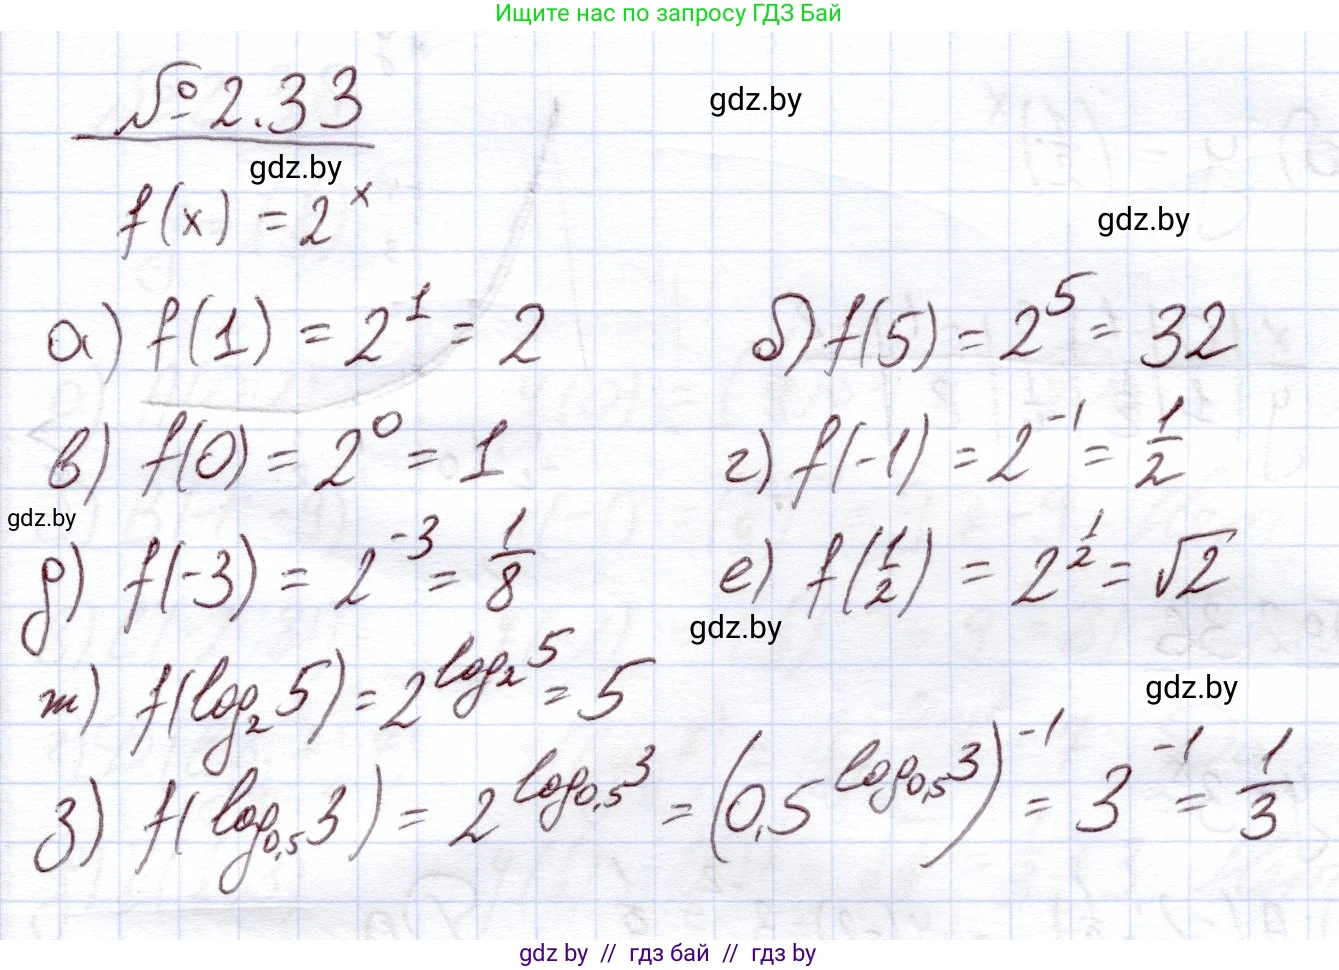 Ищите нас по запросу ГДЗ Бай
№ 2.33
gdz.by
gdz.by
f(x) = 2^x
gdz.by
а) f(1) = 2^1 = 2
б) f(5) = 2^5 = 32
в) f(0) = 2^0 = 1
г) f(-1) = 2^-1 = 1/2
gdz.by
д) f(-3) = 2^-3 = 1/8
е) f(1/2) = 2^1/2 = √2
gdz.by
ж) f(log_2 5) = 2^log_2 5 = 5
gdz.by
з) f(log_0,5 3) = 2^log_0,5 3 = (0,5^log_0,5 3)^-1 = 3^-1 = 1/3
gdz by // гдз бай // гдз by